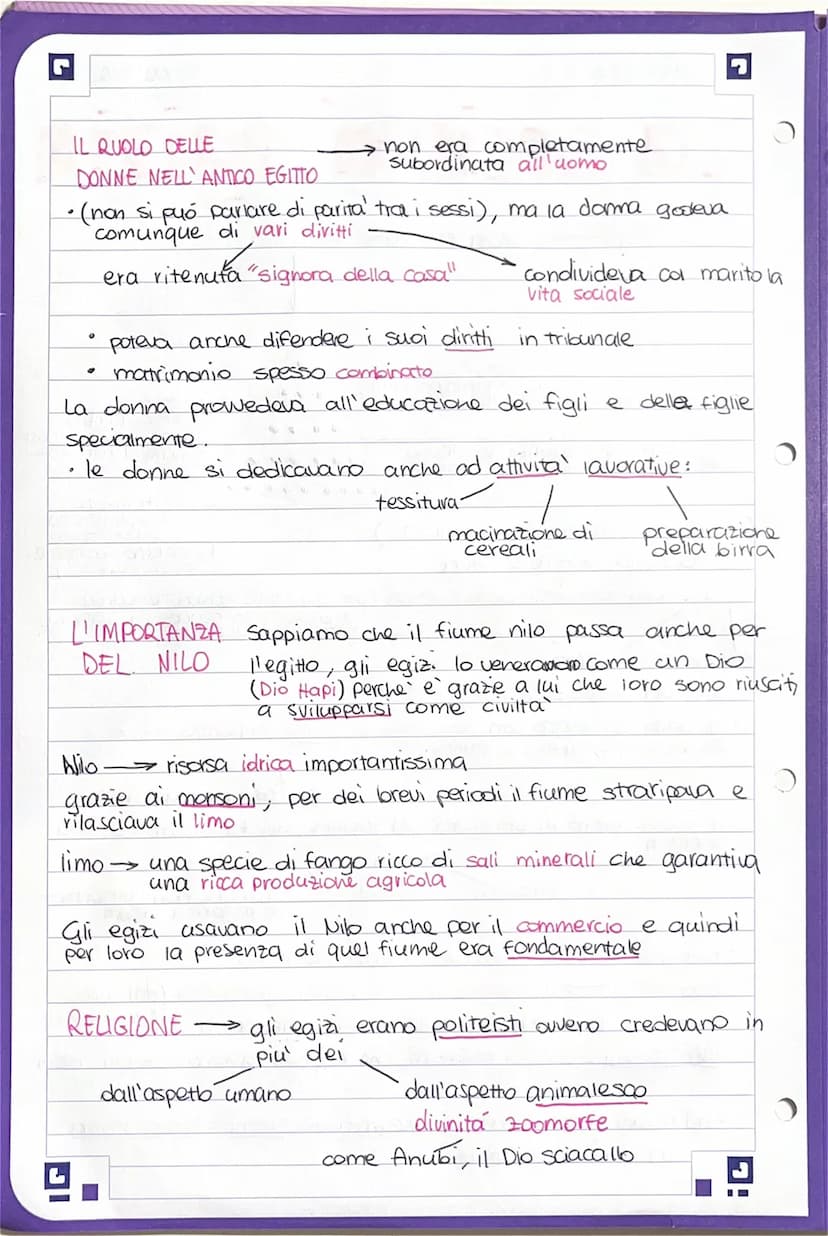 IL RUOLO DELLE
DONNE NELL'ANTICO EGITTO
→ non era completamente
subordinata all'uomo
• (non si può parlare di parità tra i sessi), ma la donna godeva
comunque di vari diritti
era ritenuta "signora della casa"
condivideva col marito la
vita sociale
• poteva anche difendere i suoi diritti in tribunale
• matrimonio spesso combinato
La donna provvedeva all'educazione dei figli e delle figlie
specialmente.
• le donne si dedicavano anche ad attività lavorative:
tessitura
macinazione di
cereali
preparazione
della birra
L'IMPORTANZA
DEL NILO
Sappiamo che il fiume nilo passa anche per
l'egitto, gli egizi lo veneravano come un Dio
(Dio Hapi) perchè è grazie a lui che loro sono riusciti
a svilupparsi come civiltà
Nilo → risorsa idrica importantissima
grazie ai monsoni, per dei brevi periodi il fiume straripava e
rilasciava il limo
limo → una specie di fango ricco di sali minerali che garantiva
una ricca produzione agricola
Gli egizi usavano il Nilo anche per il commercio e quindi
per loro la presenza di quel fiume era fondamentale
RELIGIONE → gli egizi erano politeisti ovvero credevano in
più dei
dall'aspetto umano
dall'aspetto animalesco
divinità zoomorfe
come Anubi, il Dio sciacallo